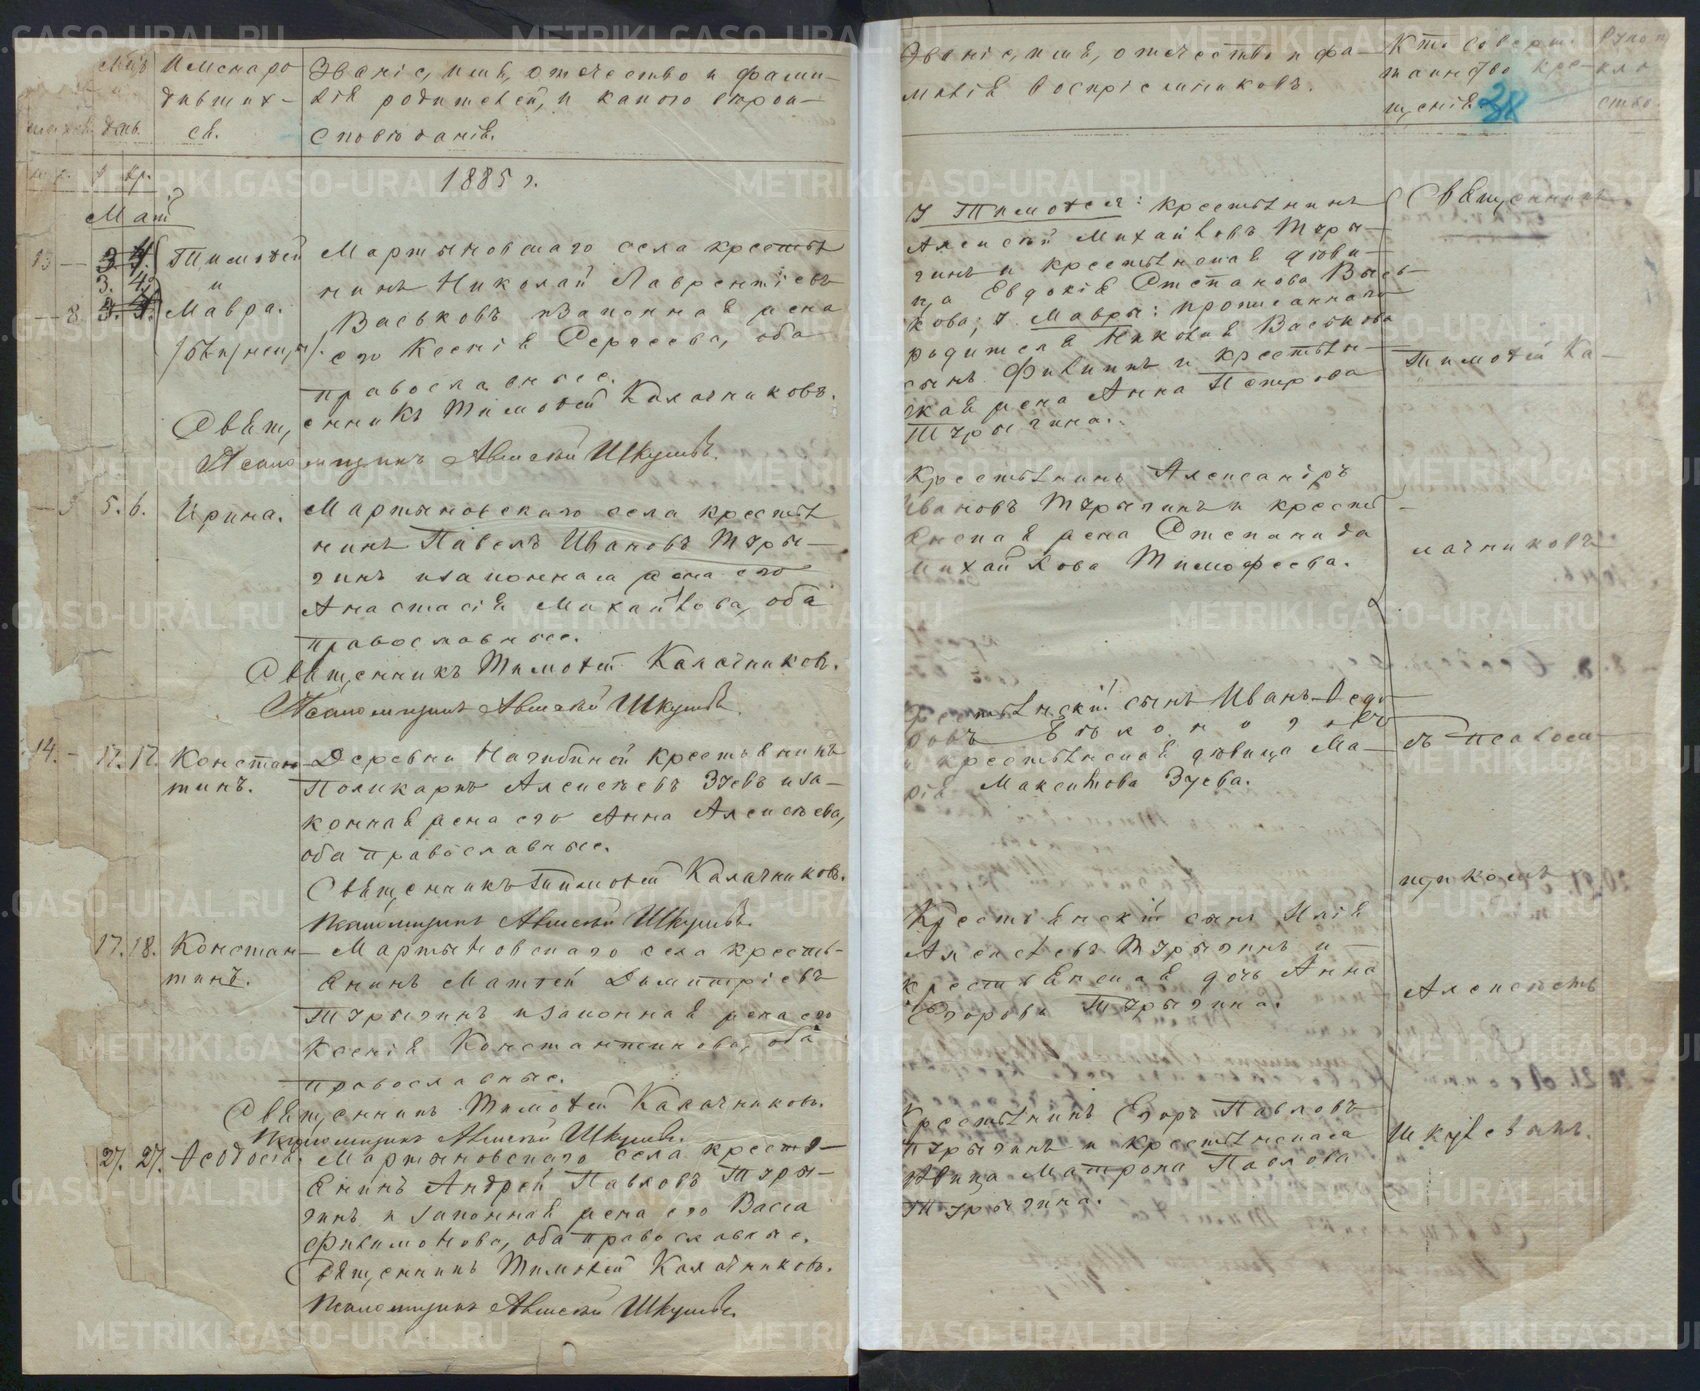 Мѣс. и
Имена ро
дивших-
ся.
Званіе, имя, отечество и фами-
лія родителей, и какого вѣрои-
сповѣданія.
день.
1885 г.
Май
13 3 4
3. 4.
Тимоѳей
и
8 3. 4.
Мавра.
/близнецы/.
Мартыновскаго села крестья
нинъ Николай Лаврентіевъ
Васьковъ и законная жена
его Ксенія Сергеева, оба
православные.
Священникъ Тимоѳей Калачниковъ.
Псаломщикъ Алексѣй Шкулевъ.
5. 6. Ирина.
Мартыновскаго села крестья
нинъ Павелъ Ивановъ Туры-
гинъ и законная жена его
Анастасія Михайлова, оба
православные.
Священникъ Тимоѳей Калачниковъ.
Псаломщикъ Алексѣй Шкулевъ.
14. 17. 17. Констан-
тинъ.
Деревни Начибиной крестьянинъ
Поликарпъ Алексѣевъ Зуевъ и за-
конная жена его Анна Алексѣева,
оба православные.
Священникъ Тимоѳей Калачниковъ.
Псаломщикъ Алексѣй Шкулевъ.
17. 18. Констан-
тинъ.
Мартыновскаго села кресть-
янинъ Матѳей Дымитріевъ
Турыгинъ и законная жена его
Ксенія Константинова, оба
православные.
Священникъ Тимоѳей Калачниковъ.
Псаломщикъ Алексѣй Шкулевъ.
27. 27. Ѳеодосія.
Мартыновскаго села кресть-
янинъ Андрей Павловъ Туры-
гинъ и законная жена его Васса
Филимонова, оба православные.
Священникъ Тимоѳей Калачниковъ.
Псаломщикъ Алексѣй Шкулевъ.
Званіе, имя, отечество и фа-
милія воспріемниковъ.
Кто соверш.
таинство кре-
щенія.
38
У Тимоѳея: крестьянинъ
Алексѣй Михайловъ Туры-
гинъ и крестьянская дѣви-
ца Евдокія Степанова Вась-
кова; у Мавры: прописаннаго
родителя Николая Васькова
сынъ Филиппъ и крестьян-
ская жена Анна Петрова
Турыгина.
Крестьянинъ Александръ
Ивановъ Турыгинъ и кресть-
янская жена Степанида
Михайлова Тимофеева.
Крестьянскій сынъ Иванъ Ѳедо-
ровъ
и крестьянская дѣвица Ма-
рія Максимова Зуева.
Крестьянскій сынъ Илія
Алексѣевъ Турыгинъ и
крестьянская дочь Анна
Егорова Турыгина.
Крестьянинъ Егоръ Павловъ
Турыгинъ и крестьянская
дѣвица Матрона Павлова
Турыгина.
Священникъ
Тимоѳей Ка-
лачниковъ
съ псалом-
щикомъ
Алексѣемъ
Шкулевымъ.
METRIKI.GASO-URAL.RU